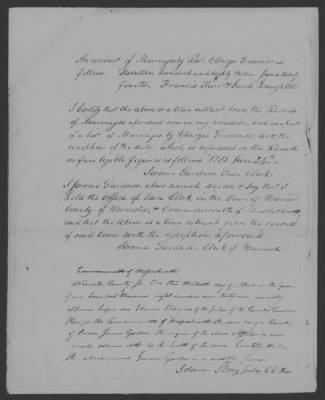 An account of Marriages by Rev. Ebenezer Grosvenor as
follows Seventeen hundred and eighty three June twenty
fourth. Francis & Sarah
I Certify that the above is a true extract from the Records
of Marriages aforesaid now in my possession and as part
of a list of Marriages by Ebenezer Grosvenor, with the
exception of the date, which is expressed on the Records
in fair legible figures as follows 1783 June 24th.
Jerome Gardner Town Clerk.
I Jerome Gardner above named depose & Say that I
hold the Office of Town Clerk in the Town of Harvard
County of Worcester, & Commonwealth of Massachusetts
and that the above is a true extract from the records
of said town with the exception aforesaid.
Jerome Gardner Clerk of Harvard
Commonwealth of Massachusetts
Worcester County ss. On this day of in the year
of our Lord one thousand eight hundred and thirty nine personally
appeared before me one of the Judges of the County Court
for the Commonwealth of Massachusetts the same being a Court
of Record Jerome Gardner the signer of the above &
made solemn oath to the truth of the same
the above named Jerome Gardner is a credible person
Strong Judge